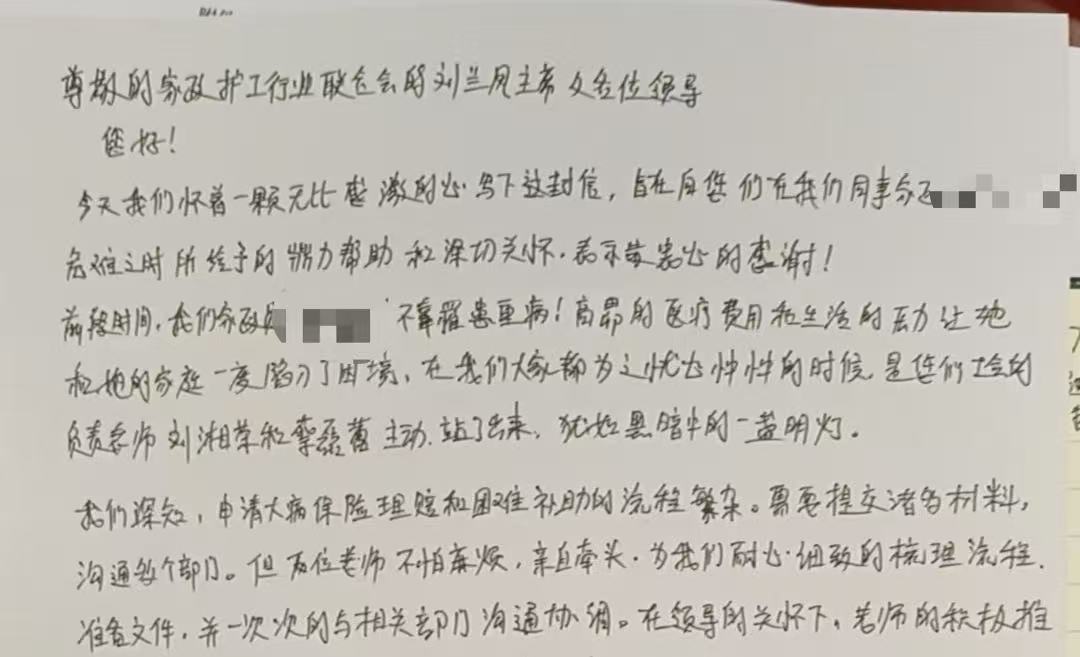 尊敬的家政护工行业联合会的刘兰凤主席及各位领导
您好!
今天我们怀着一颗无比感激的心写下这封信,旨在向您们在我们同事家政
危难之时所给予的鼎力帮助和深切关怀.表示最衷心的感谢!
前段时间,我们家政员 不幸罹患重病!高昂的医疗费用和生活的压力让她
和她的家庭一度陷入了困境,在我们大家都为之忧心忡忡的时候,是您们工会的
负责老师刘湘荣和 主动.站了出来,犹如黑暗中的一盏明灯。
我们深知,申请大病保险理赔和困难补助的流程繁杂。需要提交诸多材料,
沟通多个部门。但两位老师不怕麻烦,亲自牵头.为我们耐心.细致的梳理流程.
准备文件,并一次次的与相关部门沟通协调。在领导的关怀下,老师的积极推